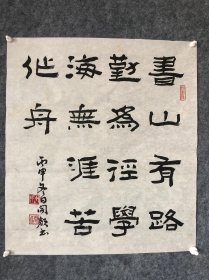 書山有路
勤為徑學
海無涯苦
作舟
丙申冬日